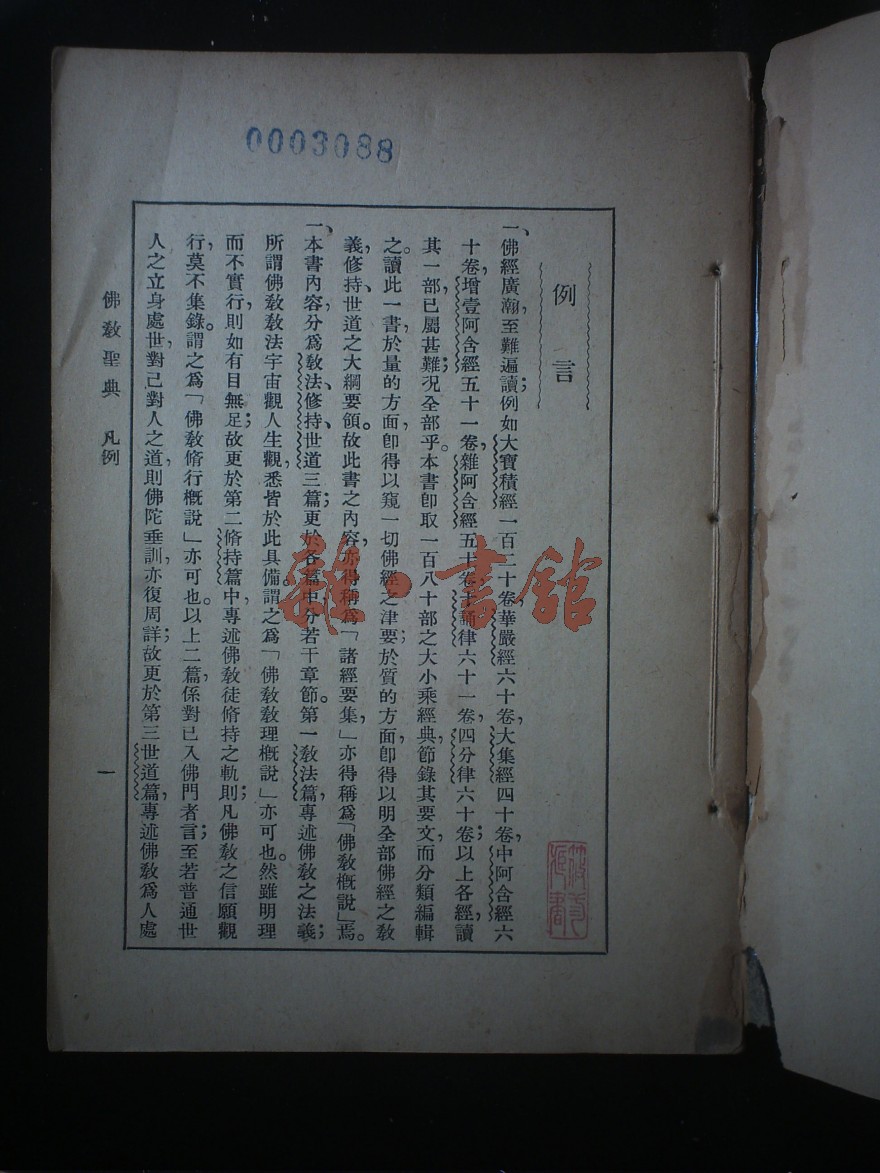 0003088
例言
一、佛經廣瀚，至難遍讀；例如大寶積經一百二十卷，華嚴經六十卷，大集經四十卷，中阿含經六
十卷，增壹阿含經五十一卷，雜阿含經五十卷，十誦律六十一卷，四分律六十卷；以上各經，讀
其一部，已屬甚難，況全部乎。本書卽取一百八十部之大小乘經典，節錄其要文，而分類編輯
之。讀此一書，於量的方面，卽得以窺一切佛經之津要；於質的方面，卽得以明全部佛經之敎
義，修持、世道之大綱要領。故此書之內容，亦得稱爲「諸經要集，」亦得稱爲「佛敎槪說」焉。
一、本書內容，分爲敎法、修持、世道三篇；更於各篇中，分若干章節。第一敎法篇，專述佛敎之法義；
所謂佛敎敎法宇宙觀人生觀，悉皆於此具備。謂之爲「佛敎敎理槪說」亦可也。然雖明理
而不實行，則如有目無足；故更於第二脩持篇中，專述佛敎徒脩持之軌則；凡佛敎之信願觀
行，莫不集錄。謂之爲「佛敎脩行槪說」亦可也。以上二篇，係對已入佛門者言；至若普通世
人之立身處世，對己對人之道，則佛陀垂訓，亦復周詳；故更於第三世道篇，專述佛敎爲人處
佛敎聖典　凡例
一
雜·書館